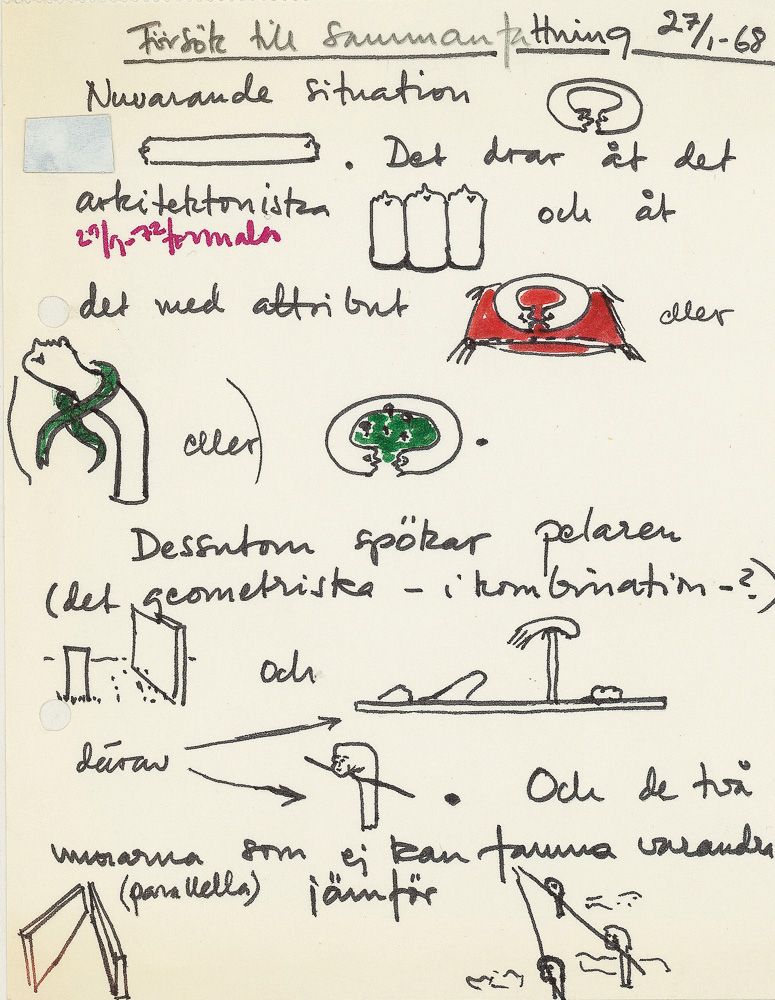 Försök till sammanfattning 27/1-68
Nuvarande situation
. Det drar åt det
arkitektoniska och åt
27/9-72 formala
det med attribut eller
( eller) .
Dessutom spökar pelaren
(det geometriska – i kombination –?)
och
därav . Och de två
murarna som ej kan famna varandra
(parallella) jämför